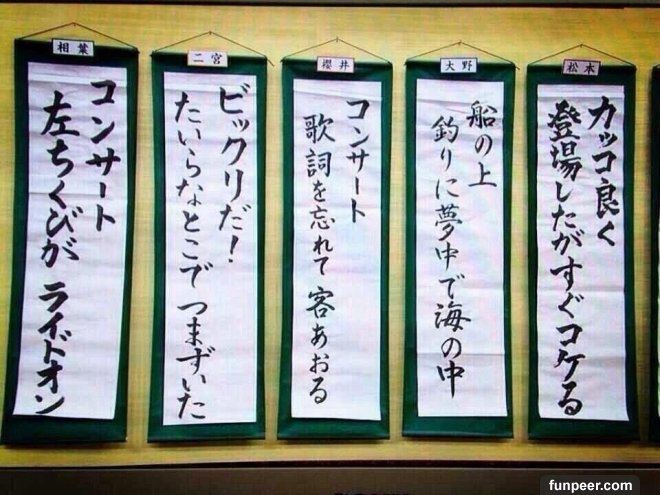 松本
カッコ良く
登場したがすぐコケる
大野
船の上
釣りに夢中で海の中
櫻井
コンサート
歌詞を忘れて 客あおる
二宮
ビックリだ!
たいらなとこで つまずいた
相葉
コンサート
左ちくびが ライドオン
funpeer.com